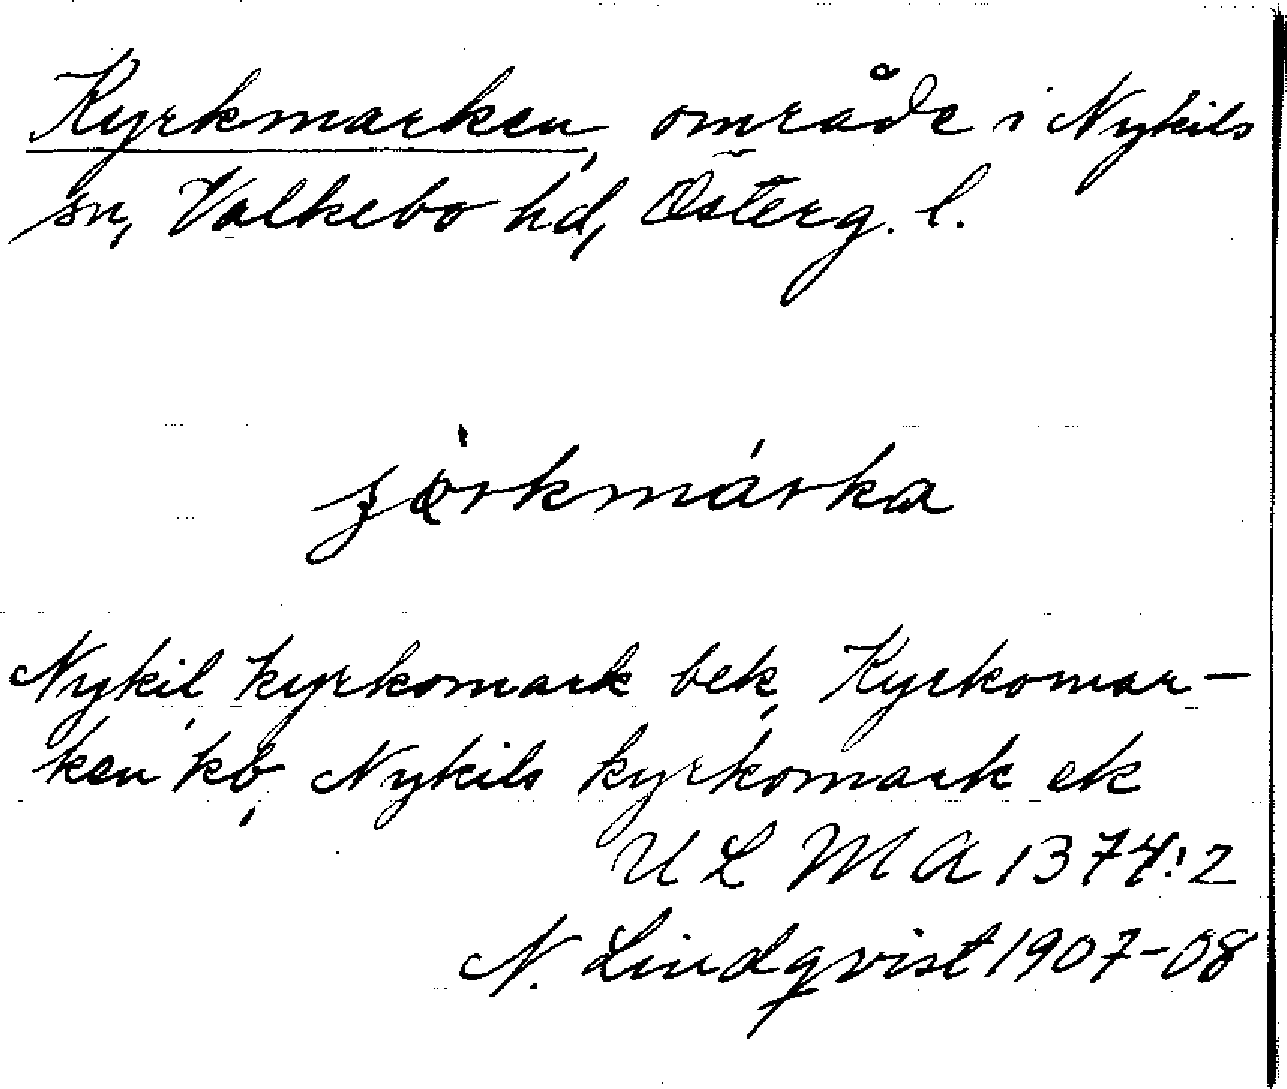 Kyrkmarken, område i Nykils
sn, Valkebo hd, Österg. l.
Nykil kyrkomark bek, Kyrkomar-
ken kb, Nykils kyrkomark ek
U L M A 1374:2
N. Lindqvist 1907-08